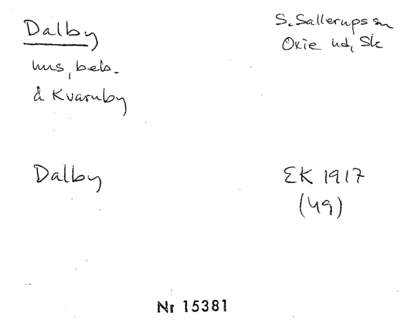 Dalby
S. Sallerups sn
hus, beb.
Oxie hd, Sk
å Kvarnby
Dalby
EK 1917
(49)
Nr 15381